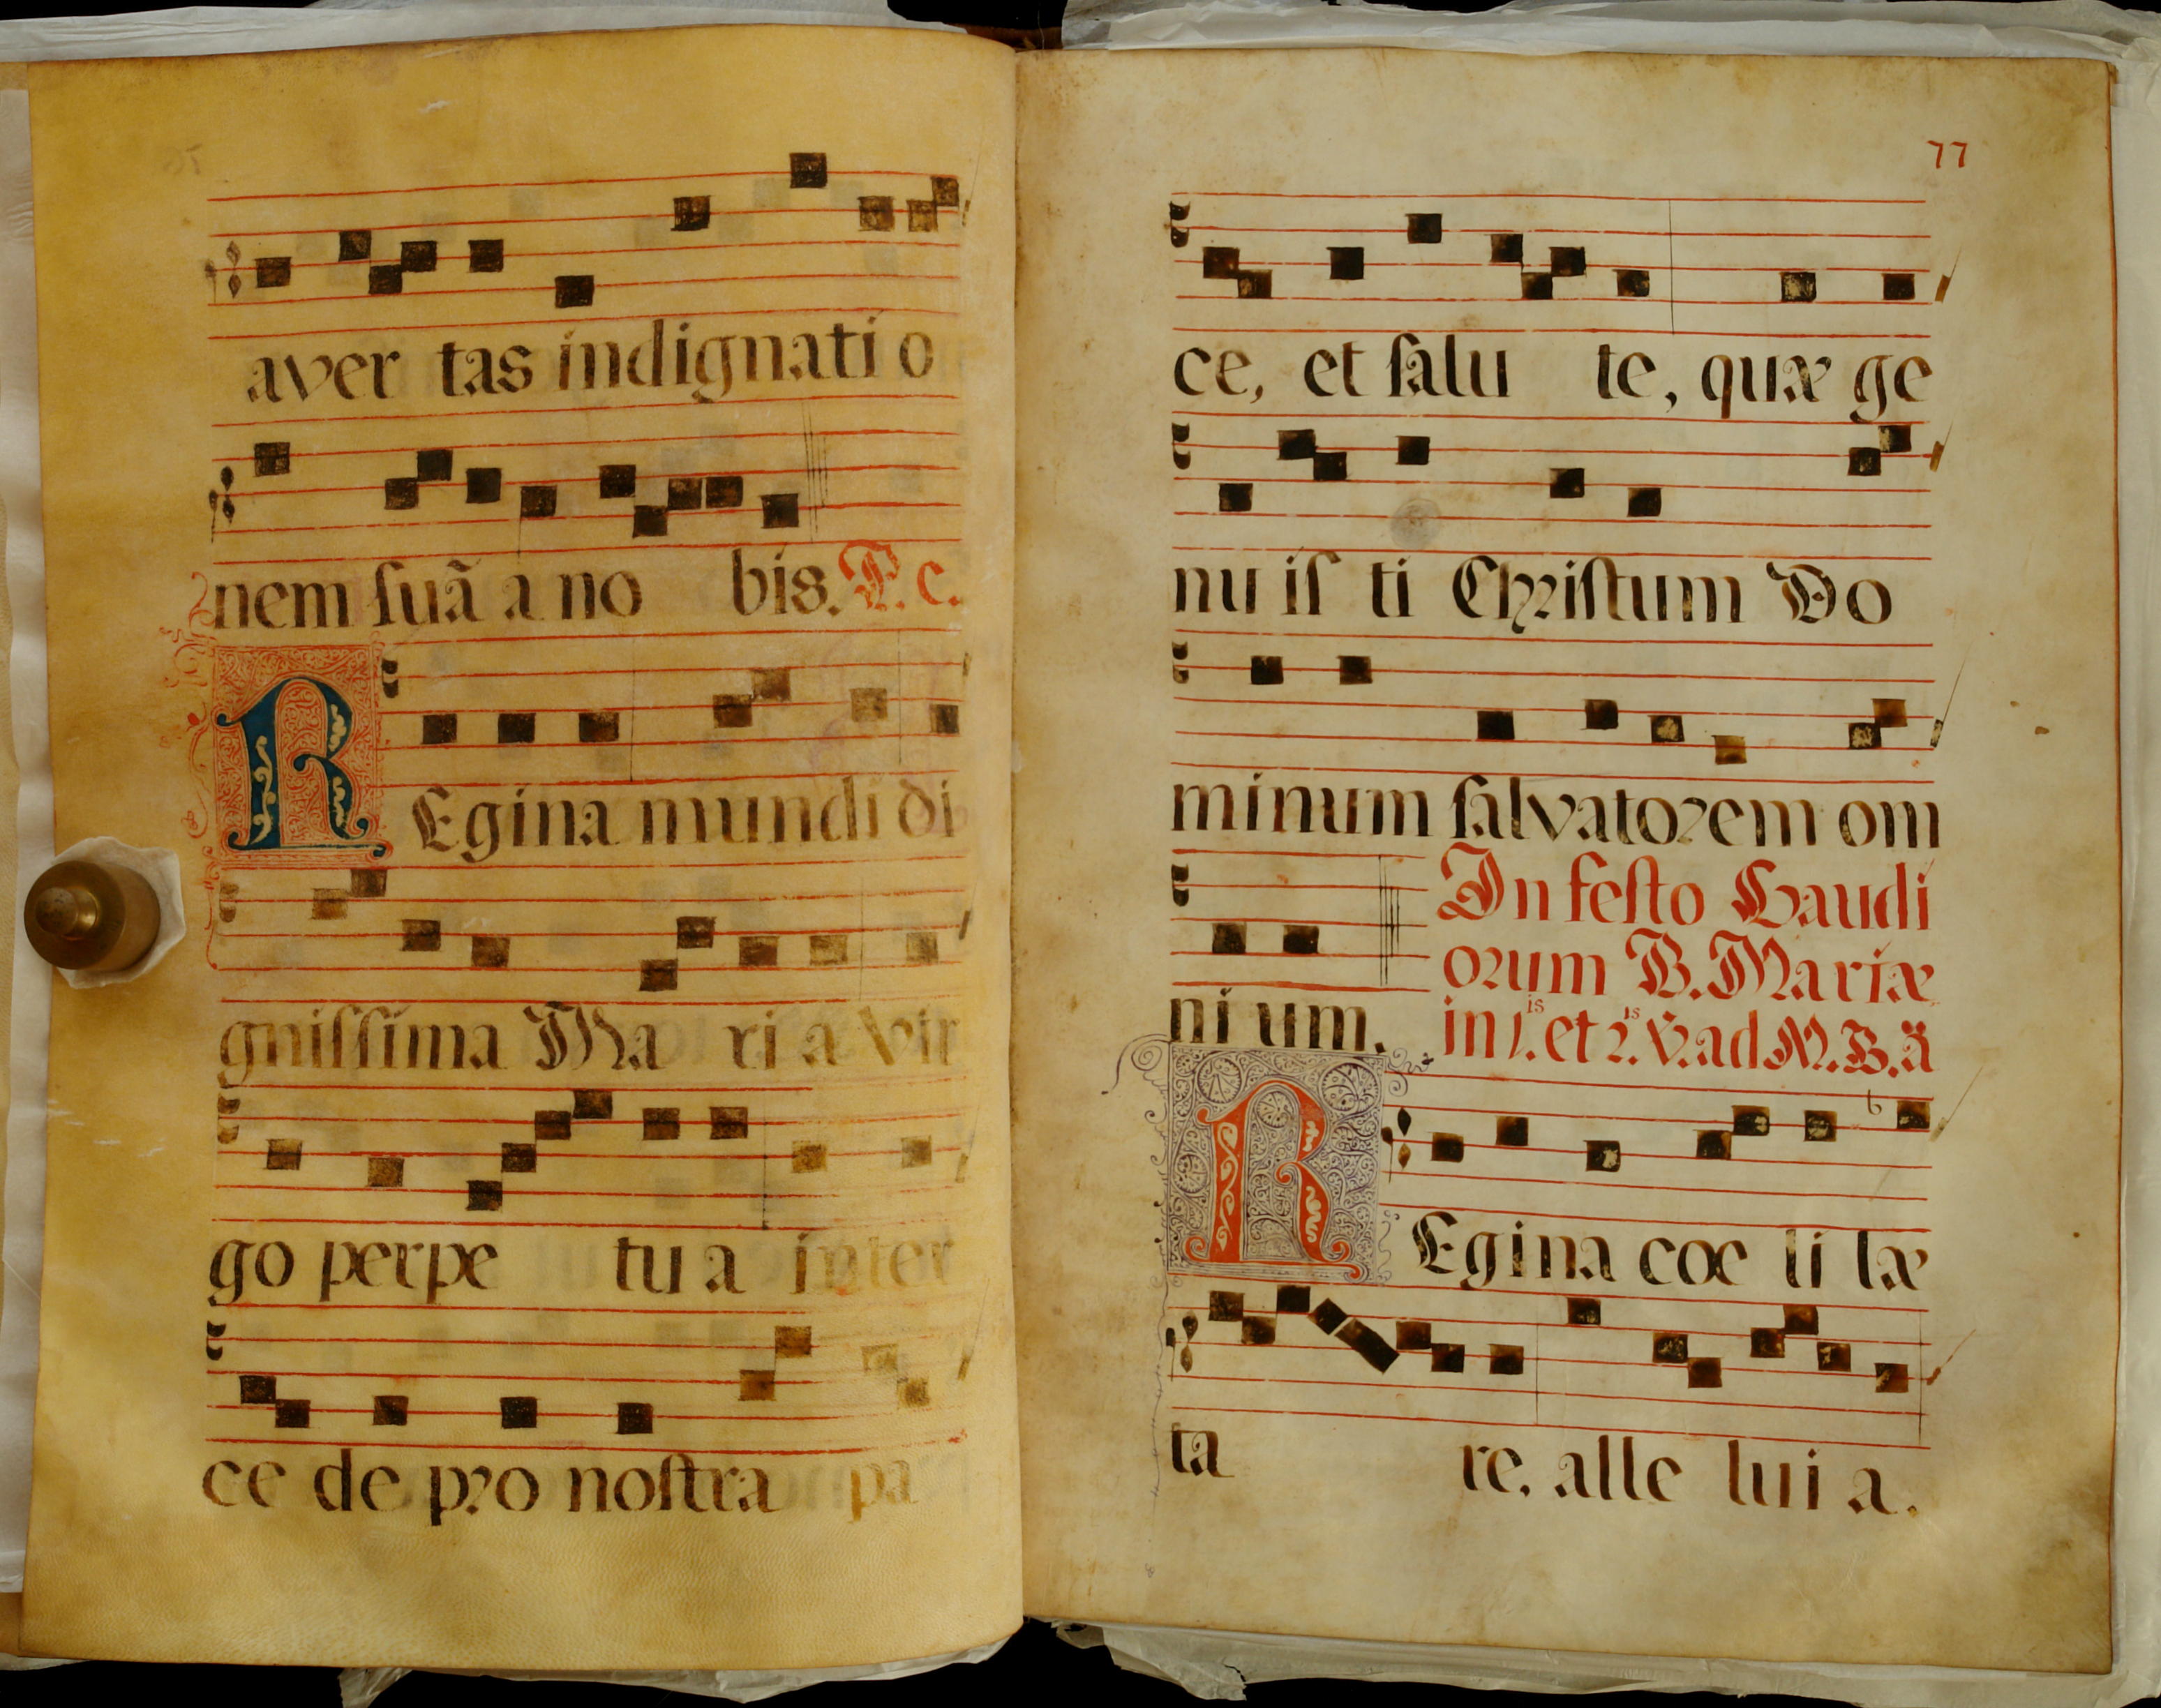 aver tas indignati o
nem suã a no bis. P. c.
REgina mundi di
gnissima Ma ri a Vir
go perpe tu a inter
ce de pro nostra pa
77
ce, et salu te, quæ ge
nu is ti Christum Do
minum salvatorem om
ni um.
In festo Gaudi
orum B. Mariæ
in 1.is et 2.is V. ad M. B. ã
REgina cœ li læ
ta re. alle lui a.